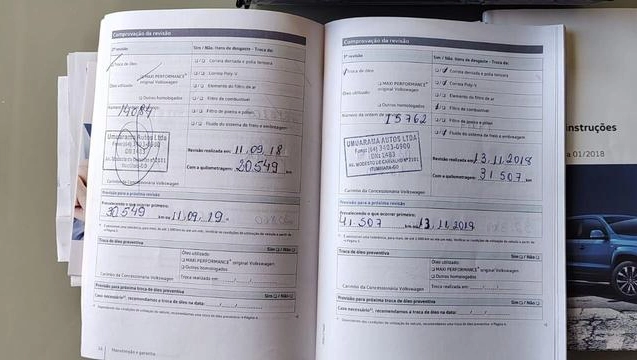 Comprovação da revisão
Sim / Não: Itens de desgaste - Troca de:
Troca de óleo
Correia dentada e polia tensora
Correia Poly-V
Óleo utilizado:
MAXI PERFORMANCE® original Volkswagen
Elemento do filtro de ar
Outros homologados
Filtro de combustível
14084
Filtro de poeira e pólen
Fluido do sistema de freio e embreagem
UMUARAMA AUTOS LTDA
Revisão realizada em: 11.09.18
Com a quilometragem: 20.549 km
Carimbo da Concessionária Volkswagen
Previsão para a próxima revisão
Prevalecendo o que ocorrer primeiro:
30.549 km ou 11.09.19
Troca de óleo preventiva
Sim / Não
Óleo utilizado:
MAXI PERFORMANCE® original Volkswagen
Outros homologados
Carimbo da Concessionária Volkswagen
Troca realizada em:
Previsão para próxima troca de óleo preventiva
Sim / Não
Caso necessário¹, recomendamos a troca de óleo na data:
Manutenção e garantia
Comprovação da revisão
3ª revisão
Sim / Não: Itens de desgaste - Troca de:
Troca de óleo
Correia dentada e polia tensora
Correia Poly-V
Óleo utilizado:
MAXI PERFORMANCE® original Volkswagen
Elemento do filtro de ar
Outros homologados
Filtro de combustível
Número da ordem de 15762
Filtro de poeira e pólen
Fluido do sistema de freio e embreagem
UMUARAMA AUTOS LTDA
Fone: (64) 3403-0900
DN: 1483
AV. MODESTO DE CARVALHO Nº 2101
ITUMBIARA-GO
Revisão realizada em: 13.11.2018
Com a quilometragem: 31.507 km
Carimbo da Concessionária Volkswagen
Previsão para a próxima revisão
Prevalecendo o que ocorrer primeiro:
41.507 km ou 13.11.2019
Troca de óleo preventiva
Sim / Não
Óleo utilizado:
MAXI PERFORMANCE® original Volkswagen
Outros homologados
Carimbo da Concessionária Volkswagen
Troca realizada em:
Previsão para próxima troca de óleo preventiva
Sim / Não
Caso necessário¹, recomendamos a troca de óleo na data:
instruções
01/2018